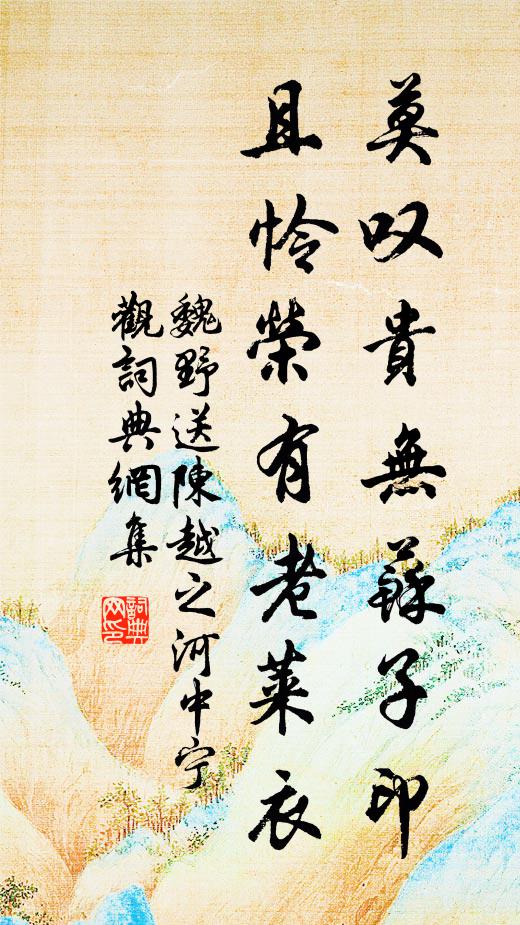 莫叹貴無蘇子印
且怜榮有老萊衣
魏野送陳越之河中宁
觀詞典網集
詞典网印